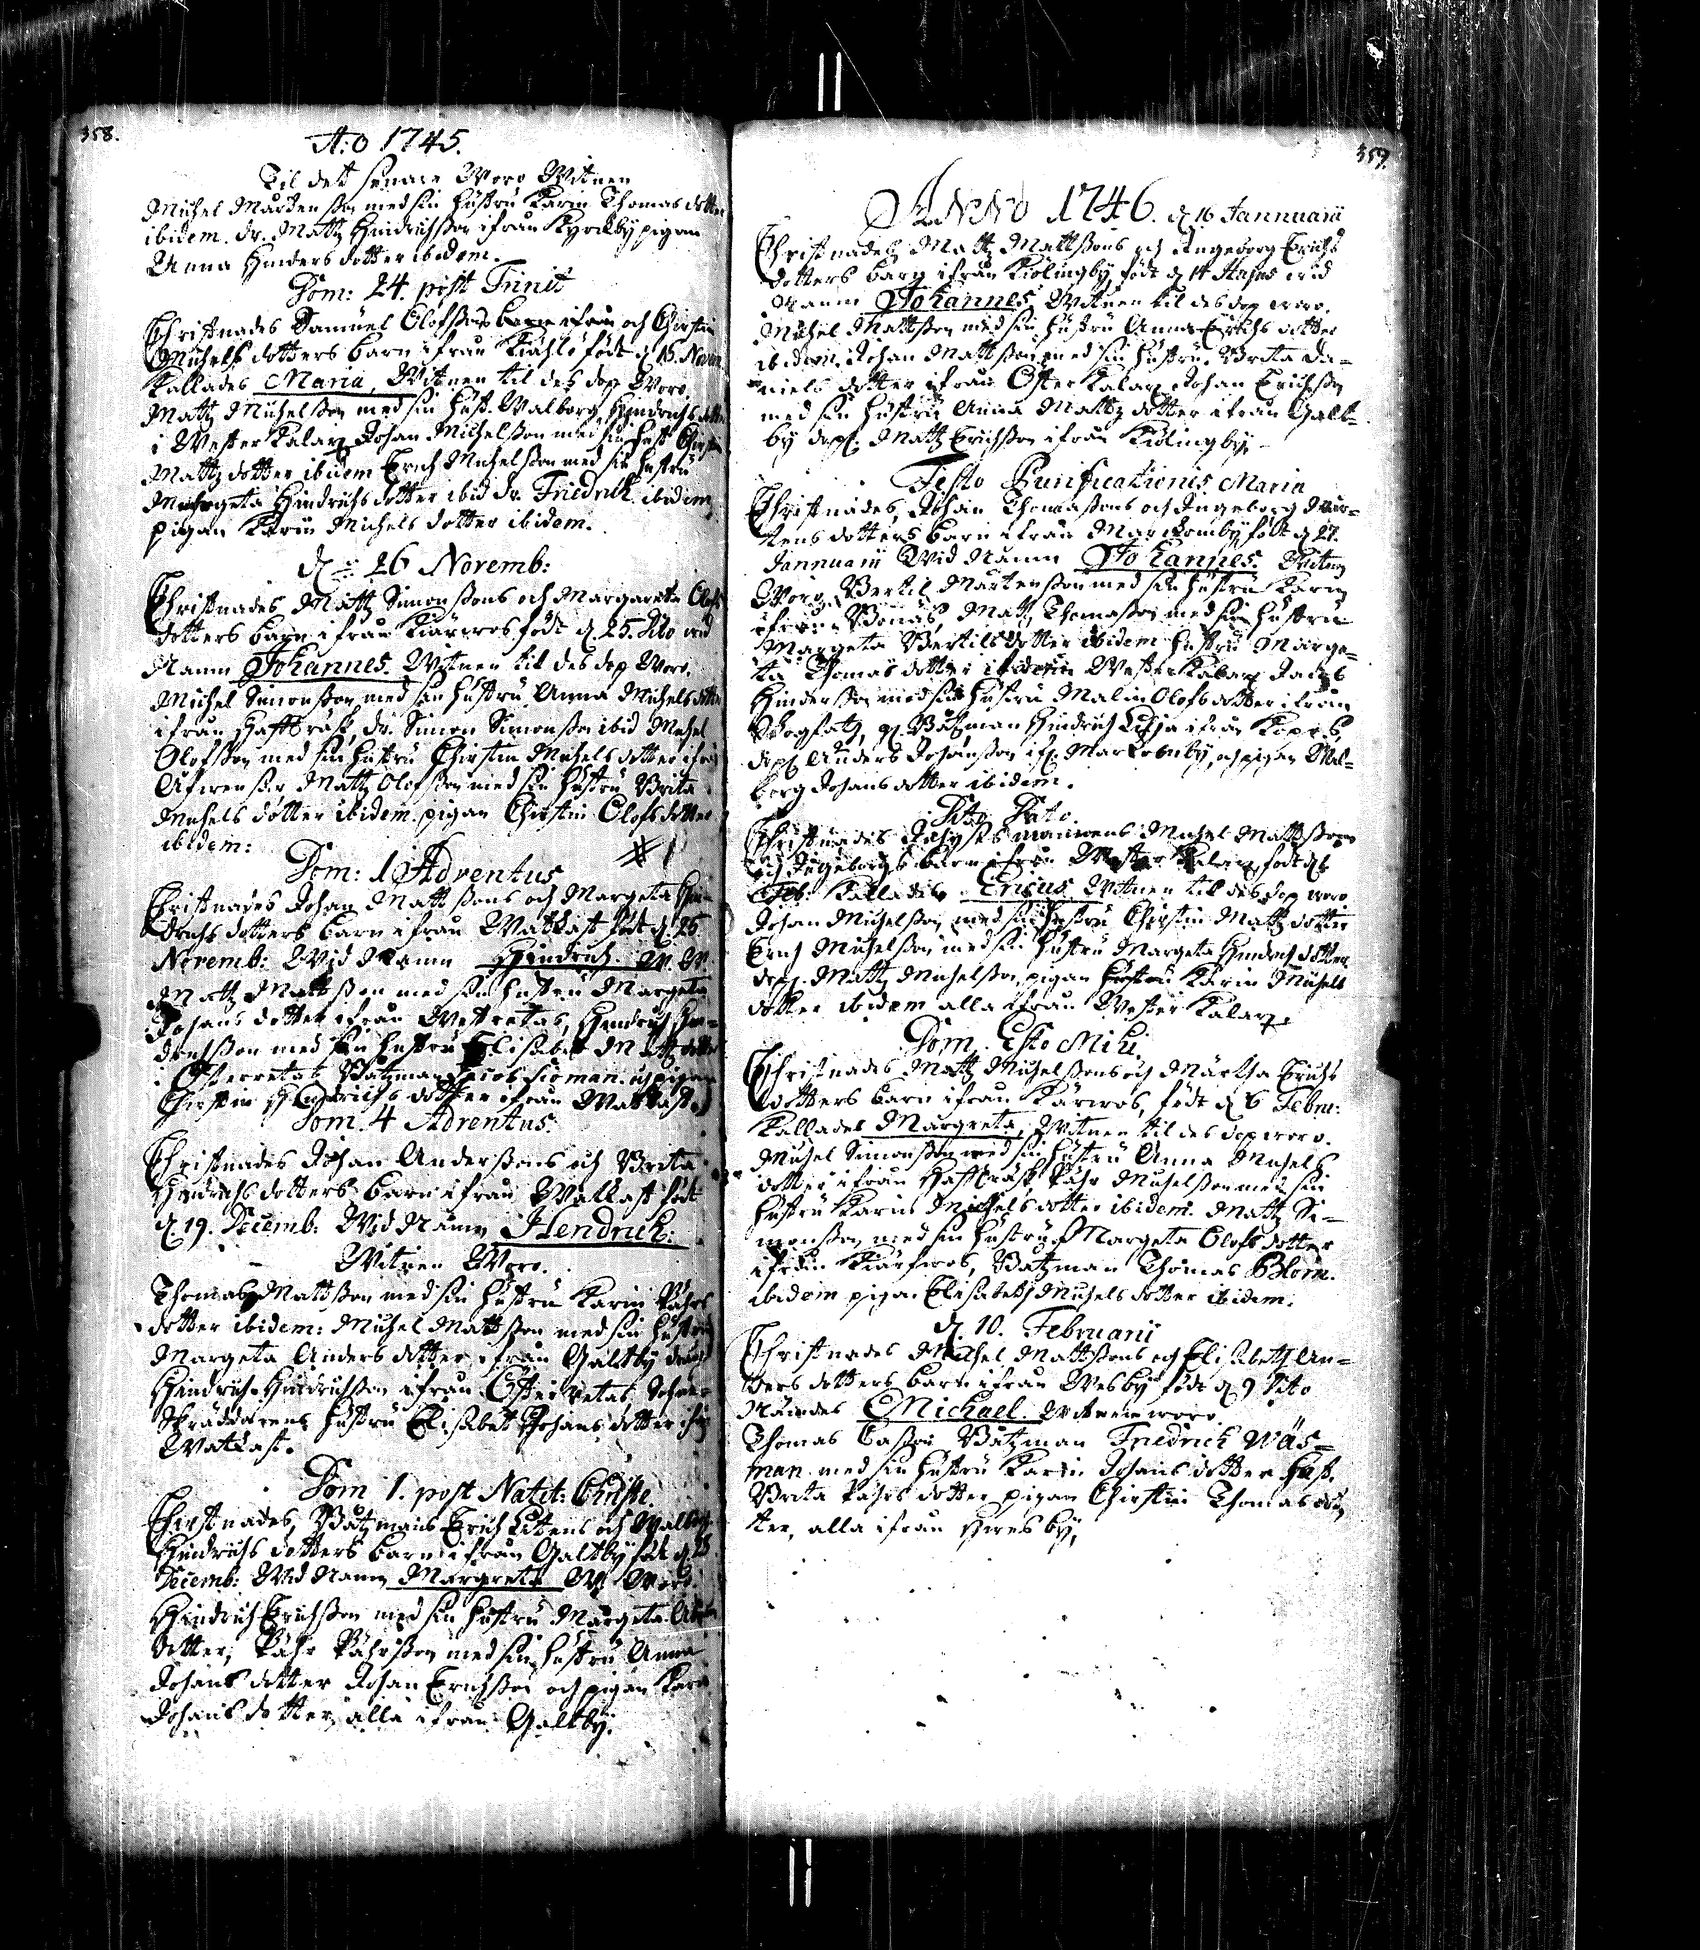 358.
A:o 1745.
Til dett senare Woro Witnen
Michel Mårtensson med sin hustru Karin Thomas dotter
ibidem. dr. Matz Hindrichsson ifrån Kyrckby pigan
Anna Hinders dotter ibidem.
Dom: 24. post Trinit
Christnades Samuel Olofssons och Chirstin
Michels dotters barn ifrån födt d. 15. Novem
Kallades Maria, Witnen til des dop Woro
Matz Michelsson med sin hust. Walborg Hindrichs dotter
i Westerkalax Johan Michelsson med sin hust Chirstin
Matz dotter ibidem Erich Michelsson med sin hustru
Margeta Hindrichs dotter ibid dr. Friedrich ibidem
pigan Karin Michels dotter ibidem.
d. 26 Novemb:
Christnades Matz Simonssons och Margareta Olofs
dotters barn ifrån födt d. 25. dito wid
Namn Johannes. Witnen til des dop Woro.
Michel Simonsson med sin hustru Anna Michels dotter
ifrån dr. Simon Simonsson ibid Michel
Olofsson med sin hustru Chirstin Michels dotter ifrån
Matz Olofsson med sin hustru Brita
Michels dotter ibidem. pigan Chirstin Olofs dotter
ibidem:
Dom: 1 Adventus
Christnades Johan Mattssons och Margeta Hin-
drichs dotters barn ifrån Watkast födt d. 25
Novemb: Wid Namn Hindrich. W. W.
Matz Mattsson med sin hustru Margeta
Johans dotter ifrån Hindrich Hin-
drichsson med sin hustru Elisabet Matz dotter
Båtzman Jacob och pigan
Chirstin Hindrichs dotter ifrån Watkast.
Dom. 4 Adventus.
Christnades Johan Anderssons och Brita
Hindrichs dotters barn ifrån Watkast födt
d. 19. Decemb: Wid Namn Hendrich.
Witnen Woro.
Thomas Mattsson med sin hustru Karin Påhrs
dotter ibidem: Michel Mattsson med sin hustru
Margeta Anders dotter ifrån Galtby
Hindrich Hindrichsson ifrån
Skräddarens hustru Elisabet Johans dotter ifrån
Watkast.
Dom 1. post Natit: Christi.
Christnades, Båtzmans Erich Litens och Walborg
Hindrichs dotters barn ifrån Galtby födt d. 28
Decemb: Wid Namn Margreta W. Woro.
Hindrich Erichsson med sin hustru Margeta
dotter, Påhr Påhrsson med sin hustru Anna
Johans dotter Johan Erichsson och pigan Karin
Johans dotter, alla ifrån Galtby.
359.
ANNO 1746. d. 16 Jannuarii
Christnades Matz Mattssons och Ingeborg Erichs
dotters barn ifrån Kiölingby födt d. 14 wid
Namn Johannes Witnen til des dop woro.
Michel Mattsson med sin hustru Anna Erichs dotter
ibidem. Johan Mattsson med sin hustru Brita Da-
niels dotter ifrån Österkalax Johan Erichsson
med sin hustru Anna Matz dotter ifrån Galt-
by Matz Erichsson ifrån Kiölingby.
Festo Purificationis Maria
Christnades, Johan Thomassons och Ingeborg Mår-
tens dotters barn ifrån Markomby födt d. 27.
Jannuarii Wid Namn Johannes. Witnen
Woro. Bertil Mårtensson med sin hustru Karin
ifrån Bonäs, Matz Thomasson med sin hustru
Margeta Bertils dotter ibidem hustru Marge-
ta Thomas dotter Westerkalax Jacob
Hindersson med sin hustru Malin Olofs dotter ifrån
Båtzman Hindrich ifrån
Anders Johansson ifr. Markomby, och pigan Wal-
borg Johans dotter ibidem.
Dito Dato.
Christnades Michel Mattssons
och Ingeborgs barn ifrån Westerkalax födt d. 1
Feb: Kallades Ericus. Witnen till des dop woro.
Johan Michelsson med sin hustru Chirstin Matz dotter
Erich Michelsson med sin hustru Margeta Hindrichs dotter
Matz Michelsson, pigan Karin Michels
dotter ibidem alla ifrån Westerkalax.
Dom. Esto Mihi.
Christnades Matz Michelssons och Märtha Erichs
dotters barn ifrån födt d. 6 Febru:
Kallades Margreta, Witnen til des dop woro.
Michel Simonsson med sin hustru Anna Michels
dotter ifrån Påhr Michelsson med sin
hustru Karin Michels dotter ibidem. Matz Si-
monsson med sin hustru Margeta Olofs dotter
ifrån Båtzman Thomas Blom.
ibidem pigan Elisabeth Michels dotter ibidem.
d. 10. Februarii
Christnades Michel Mattssons och Elisabeth An-
ders dotters barn ifrån Wesby födt d. 9 dito
Nämdes Michael. Witnen woro.
Thomas Båtzman Friedrich Wäs-
man med sin hustru Karin Johans dotter hust.
Brita Påhrs dotter pigan Chirstin Thomas dot-
ter, alla ifrån